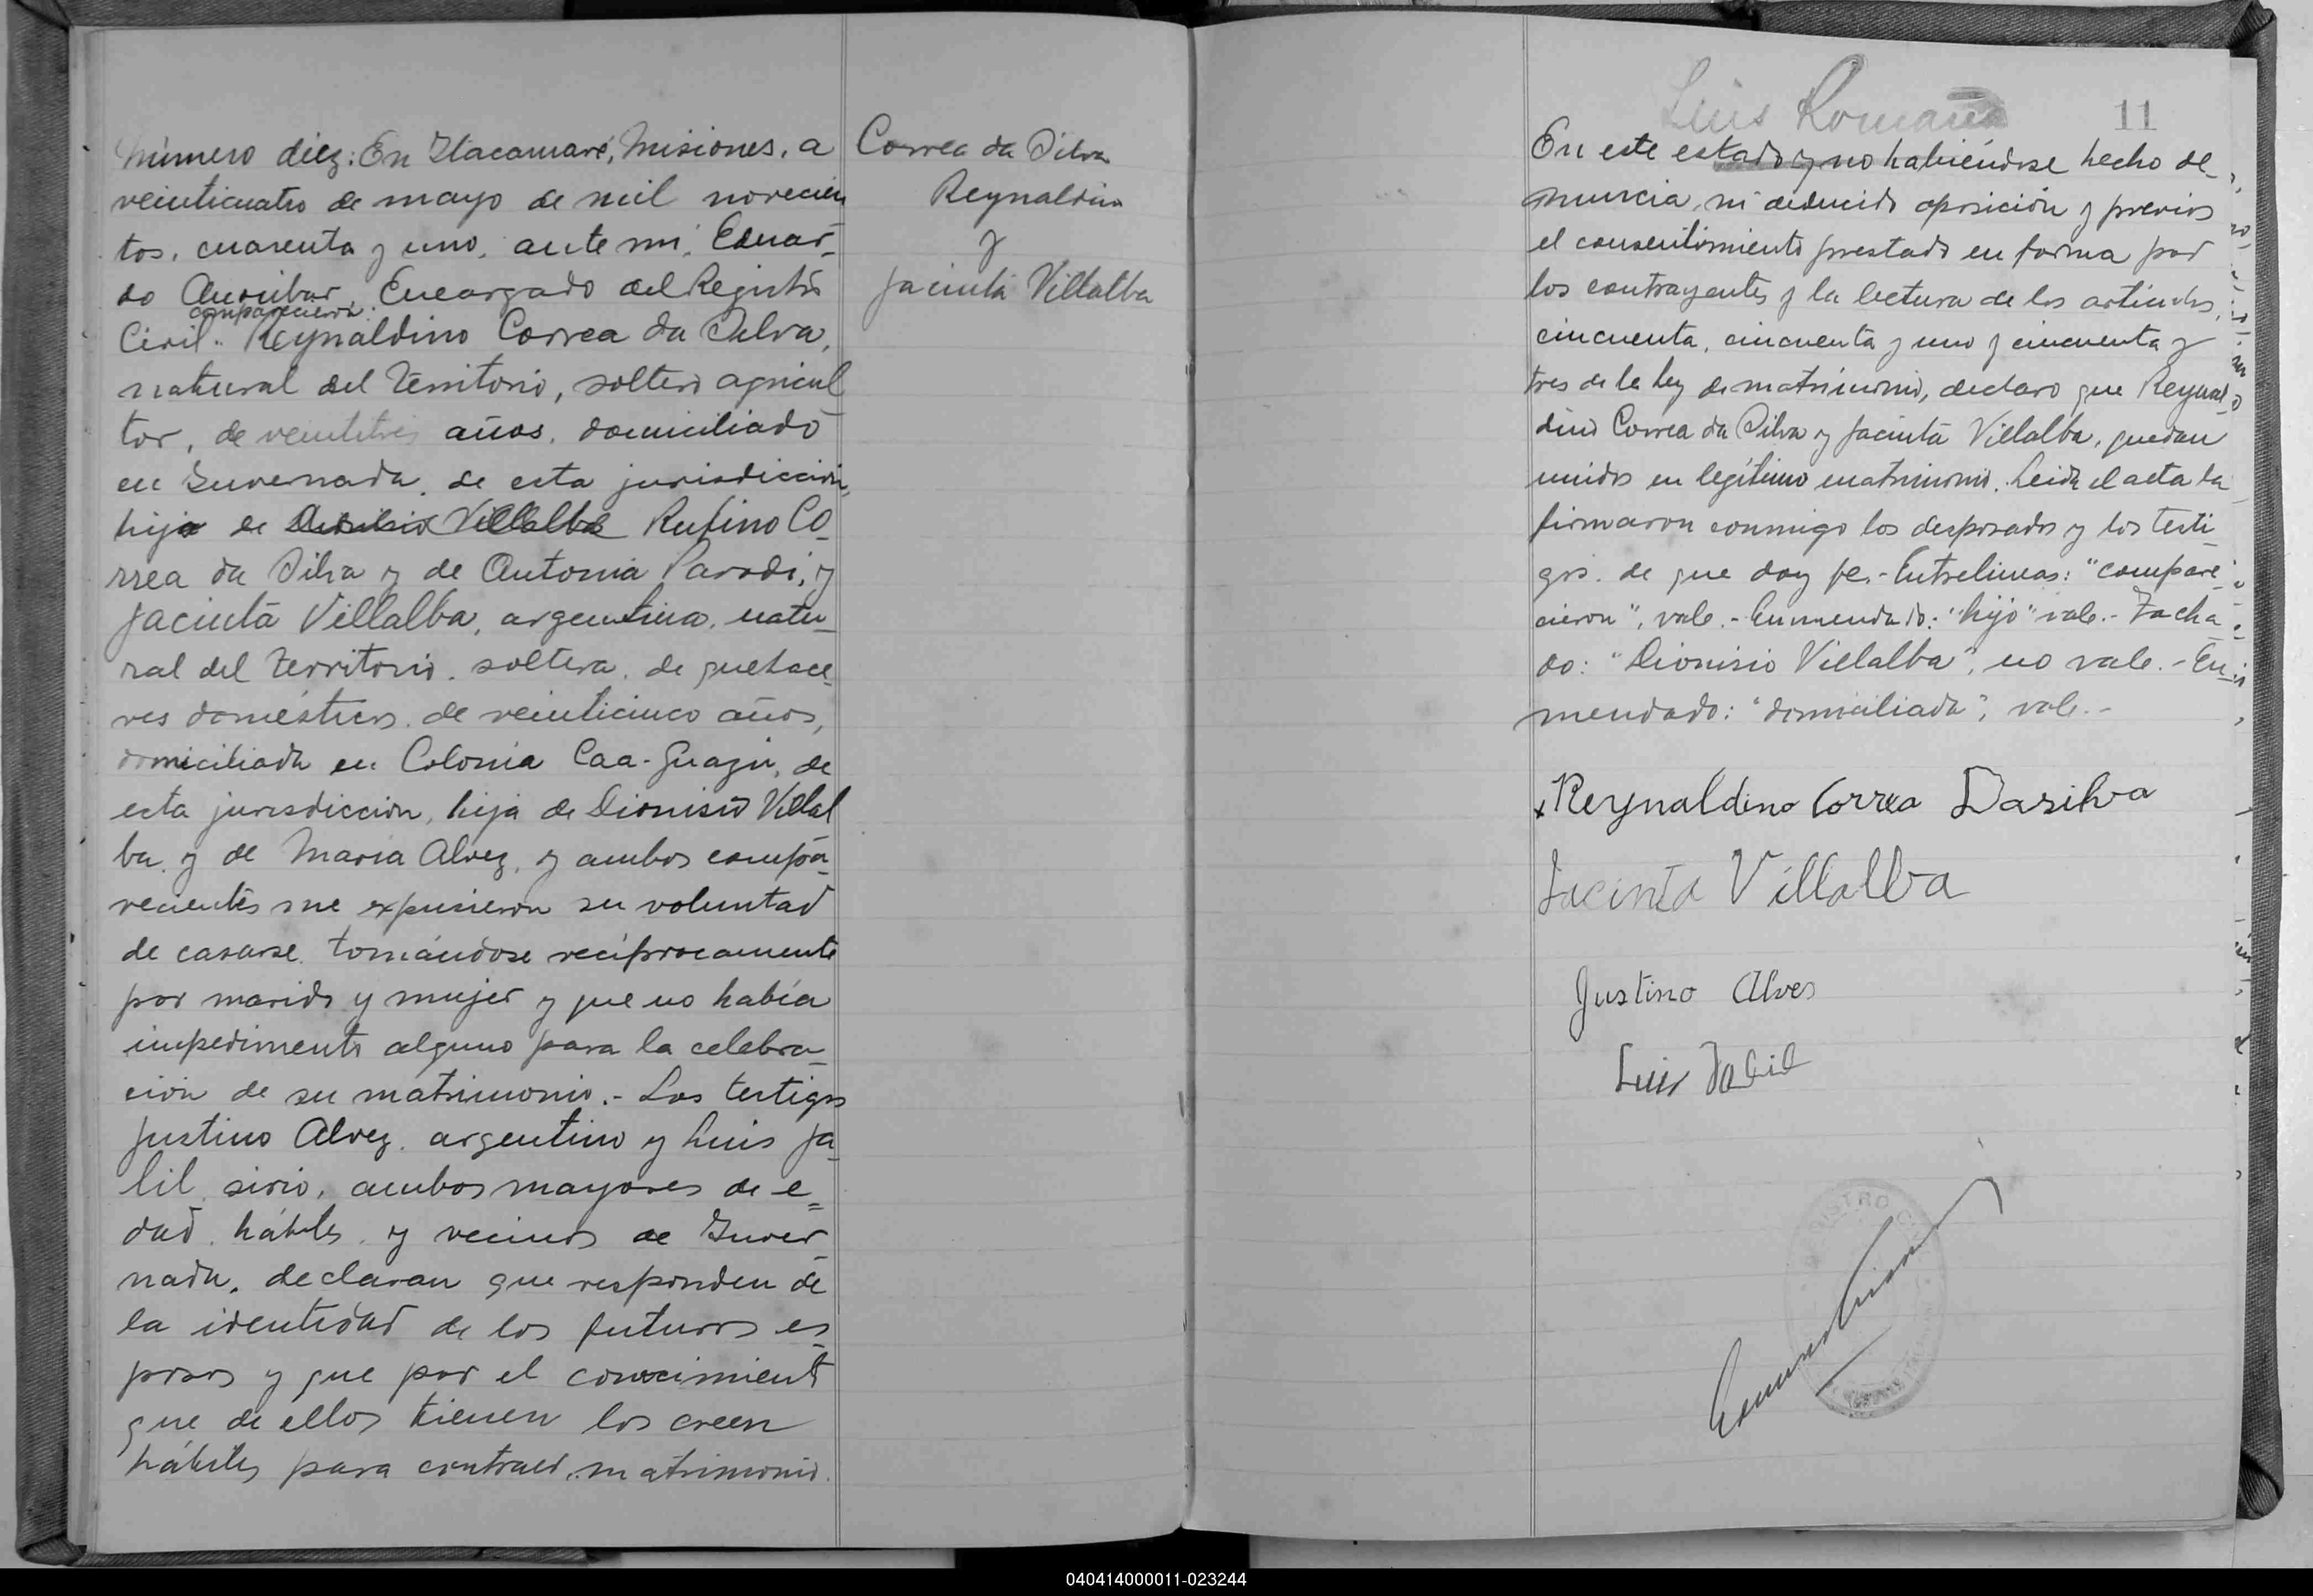 Número diez: En Itacaruaré, Misiones, a
veinticuatro de mayo de mil novecien
tos, cuarenta y uno, ante mi, Eduar-
do Encargado del Registro
comparecieron:
Civil.. Reynaldino Correa da Silva,
natural del Territorio, soltero agricul
tor, de veintitres años, domiciliado
en Invernada, de esta jurisdicción,
hijo de Dionisio Villalba Rufino Co-
rrea da Silva y de Antonia Parodi, y
Jacinta Villalba, argentina, natu-
ral del Territorio, soltera, de quehace-
res domésticos, de veinticinco años,
domiciliada en Colonia Caa-Guazú, de
esta jurisdicción, hija de Dionisio Villal
ba, y de Maria Alvez, y ambos compa-
recientes me expusieron su voluntad
de casarse tomándose recíprocamente
por marido y mujer y que no había
impedimento alguno para la celebra-
ción de su matrimonio.- Los testigos
Justino Alvez, argentino y Luis Ja-
lil, sirio, ambos mayores de e=
dad, hábiles, y vecinos de Inver-
nada, declaran que responden de
la identidad de los futuros es-
posos y que por el conocimiento
que de ellos tienen los creen
hábiles para contraer matrimonio.
Correa da Silva
Reynaldino
y
Jacinta Villalba
Luis Romaña
11
En este estado y no habiéndose hecho de-
nuncia, ni deducido oposición y previos
el consentimiento prestado en forma por
los contrayentes y la lectura de los artículos,
cincuenta, cincuenta y uno y cincuenta y
tres de la ley de matrimonio, declaro que Reynal-
dino Correa da Silva y Jacinta Villalba, quedan
unidos en legítimo matrimonio. Leida el acta la
firmaron conmigo los desposados y los testi-
gos, de que doy fe.- Entrelineas: "compare
cieron", vale.- Enmendado: "hijo" vale.- Tacha-
do: "Dionisio Villalba", no vale.- En-
mendado: "domiciliada", vale.-
x Reynaldino Correa Dasilva
Jacinta Villalba
Justino Alves
Luis Jalil
040414000011-023244